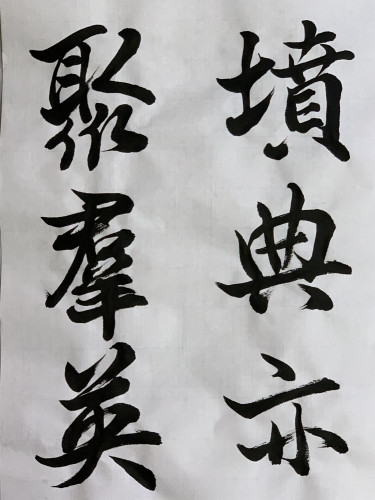 墳典亦
聚羣英